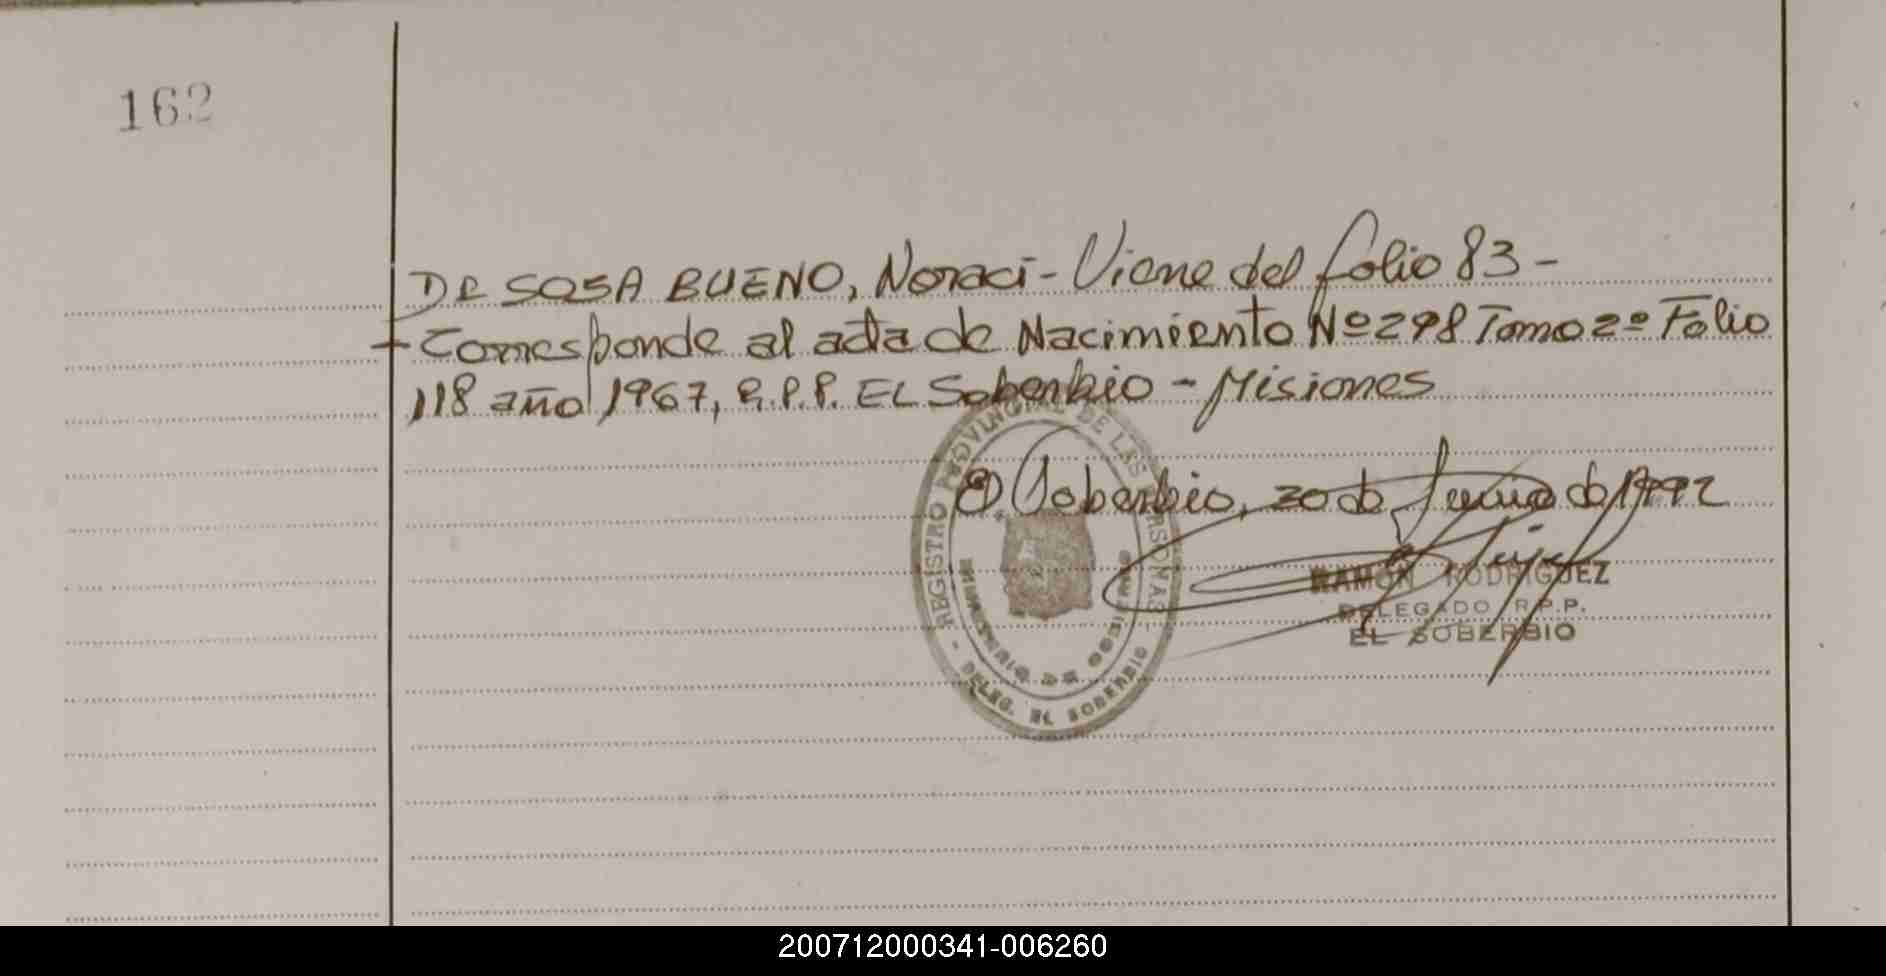 162
DE SOSA BUENO, Noraci - Viene del folio 83 -
- Corresponde al acta de Nacimiento Nº 298 Tomo 2º Folio
118 año 1967, R.P.P. EL Soberbio - Misiones
El Soberbio, 30 de Junio de 1992
REGISTRO PROVINCIAL DE LAS PERSONAS
MINISTERIO DE GOBIERNO
- DELEG. EL SOBERBIO -
RAMÓN RODRIGUEZ
DELEGADO R.P.P.
EL SOBERBIO
200712000341-006260